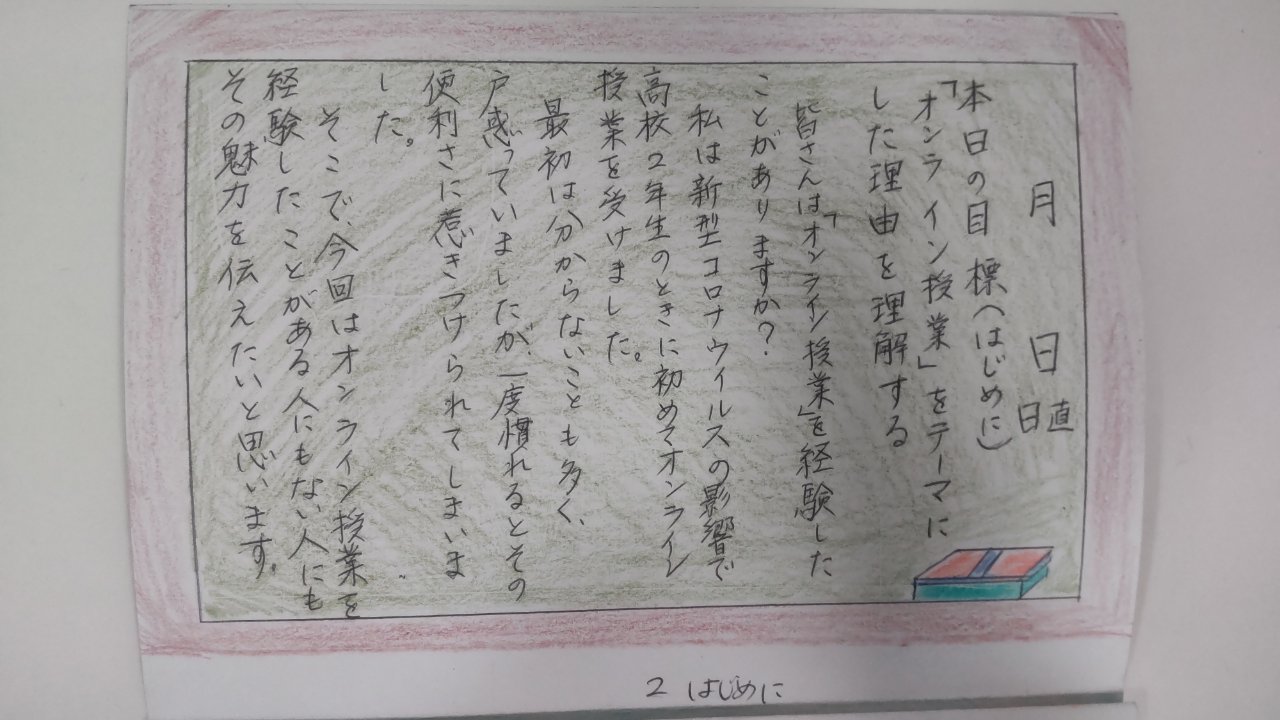 月　日
日直
本日の目標(はじめに)
「オンライン授業」をテーマに
した理由を理解する
皆さんは「オンライン授業」を経験した
ことがありますか?
私は新型コロナウイルスの影響で
高校2年生のときに初めてオンライン
授業を受けました。
最初は分からないことも多く、
戸惑っていましたが、一度慣れるとその
便利さに惹きつけられてしまいま
した。
そこで、今回はオンライン授業を
経験したことがある人にもない人にも
その魅力を伝えたいと思います。
2 はじめに